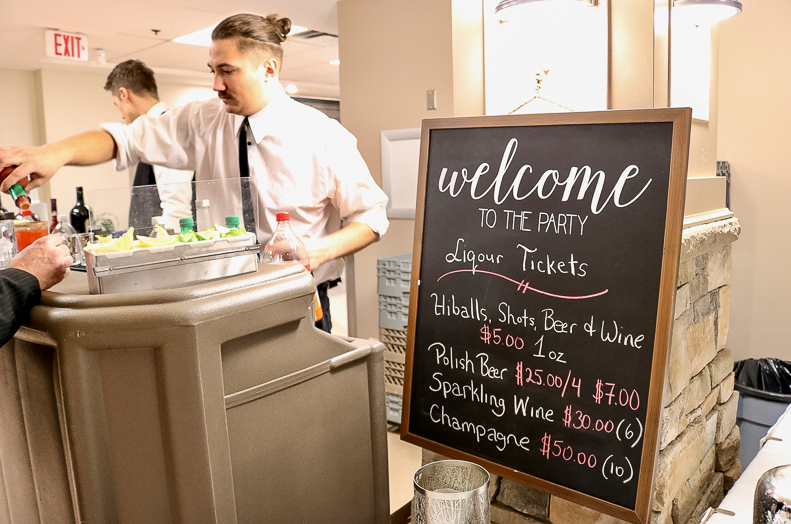 EXIT
welcome
TO THE PARTY
Liqour Tickets
Hiballs, Shots, Beer & Wine
$5.00 1oz
Polish Beer $25.00/4 $7.00
Sparkling Wine $30.00 (6)
Champagne $50.00 (10)